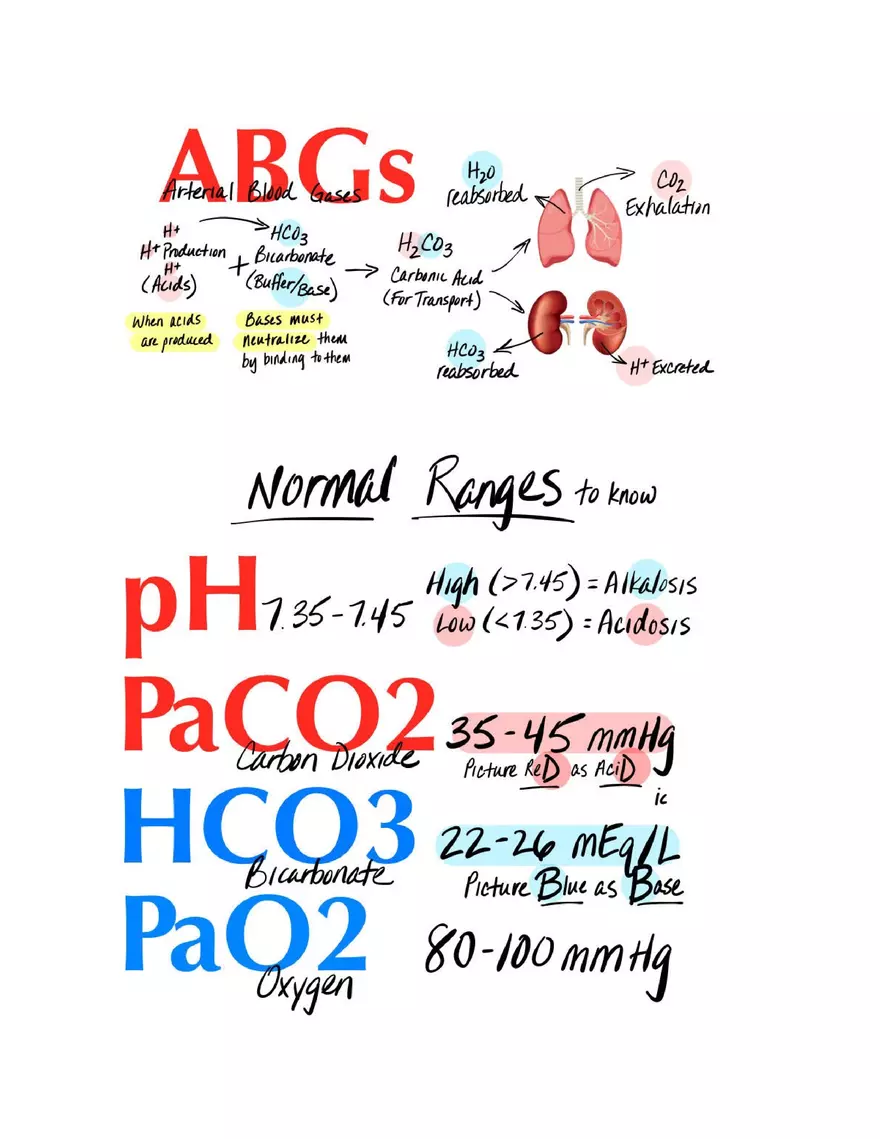 ABGs
Arterial Blood Gases
H+
H+ Production
H+
(Acids)
+
HCO3
Bicarbonate
(Buffer/Base)
When acids
are produced
Bases must
neutralize them
by binding to them
H2CO3
Carbonic Acid
(For Transport)
H2O
reabsorbed
CO2
Exhalation
HCO3
reabsorbed
H+ Excreted
Normal Ranges to know
pH 7.35-7.45
High (>7.45) = Alkalosis
Low (<7.35) = Acidosis
PaCO2
Carbon Dioxide
35-45 mmHg
Picture ReD as AciD
ic
HCO3
Bicarbonate
22-26 mEq/L
Picture Blue as Base
PaO2
Oxygen
80-100 mmHg